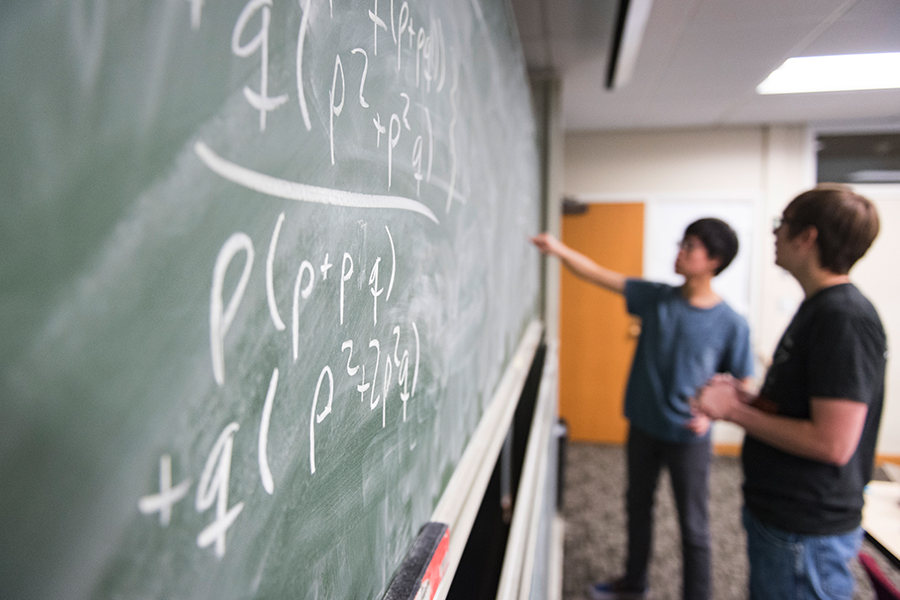 +(p+pq)
+ q(p²
+p²q)
p(p+pq)
+q(p²+2p²q)